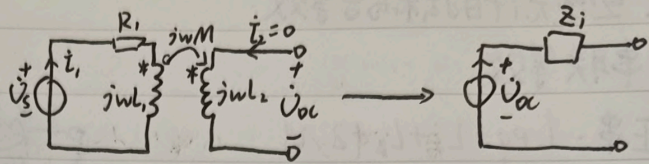 R₁ jωM i̇₂=0 Zᵢ
+ i̇₁ * * + + 
U̇s jωL₁ jωL₂ U̇oc U̇oc
- -